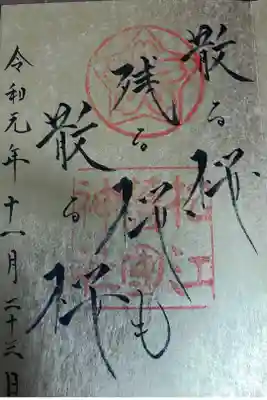 散る桜
残る桜も
散る桜
令和元年十一月二十三日
松江
神社